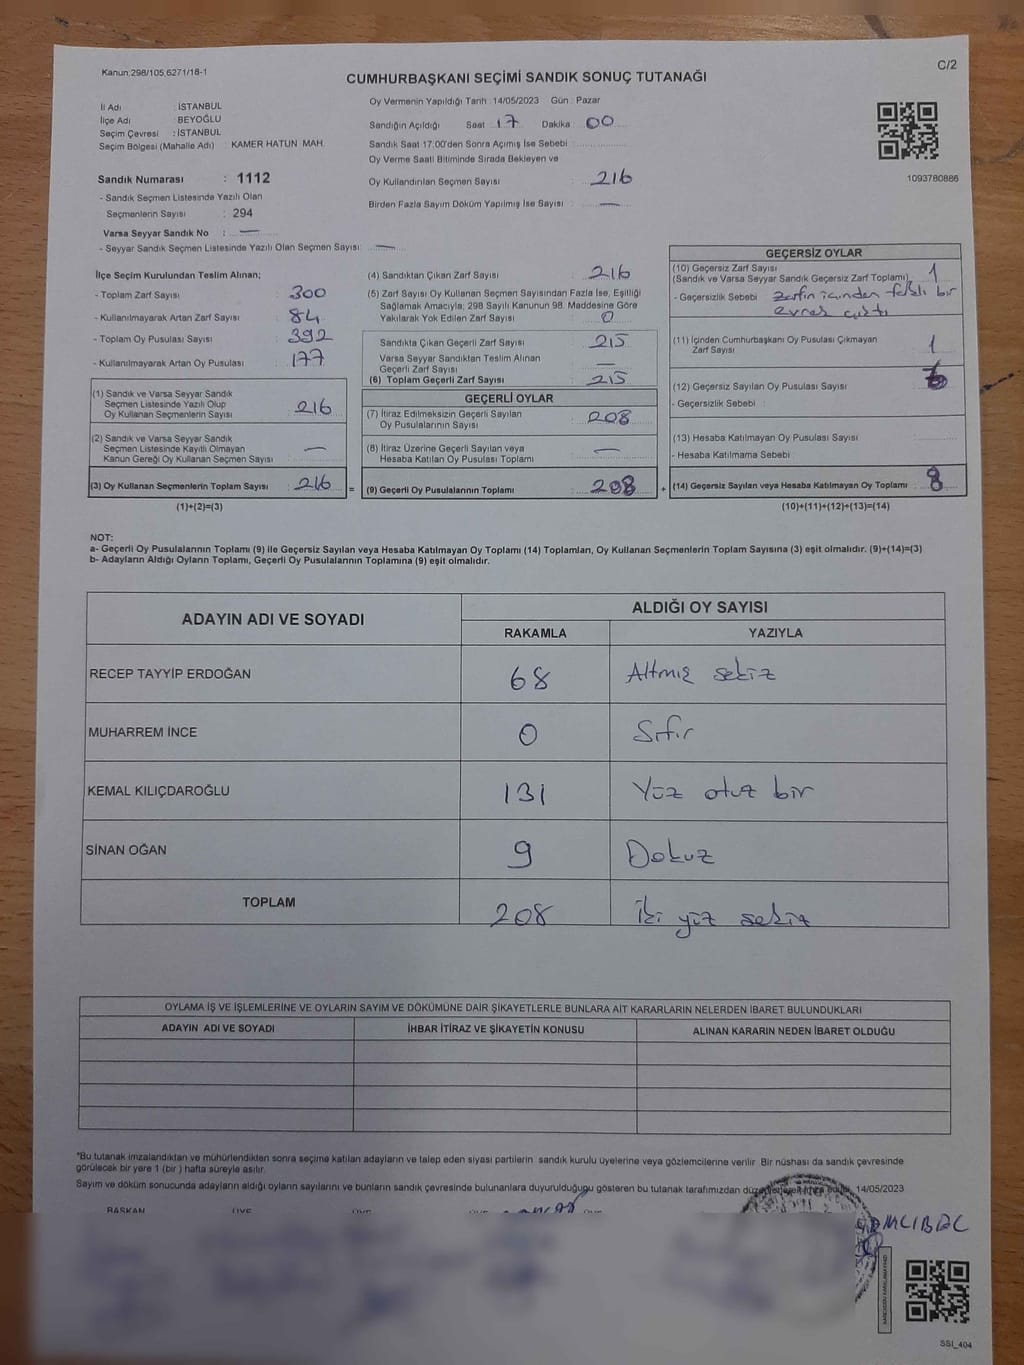 Kanun:298/105,6271/18-1
C/2
CUMHURBAŞKANI SEÇİMİ SANDIK SONUÇ TUTANAĞI
İl Adı : İSTANBUL
İlçe Adı : BEYOĞLU
Seçim Çevresi : İSTANBUL
Seçim Bölgesi (Mahalle Adı) : KAMER HATUN MAH.
Sandık Numarası : 1112
- Sandık Seçmen Listesinde Yazılı Olan
Seçmenlerin Sayısı : 294
Varsa Seyyar Sandık No : —
- Seyyar Sandık Seçmen Listesinde Yazılı Olan Seçmen Sayısı: —
Oy Vermenin Yapıldığı Tarih : 14/05/2023 Gün : Pazar
Sandığın Açıldığı Saat 17 Dakika 00
Sandık Saat 17:00'den Sonra Açımış İse Sebebi
Oy Verme Saati Bitiminde Sırada Bekleyen ve
Oy Kullandırılan Seçmen Sayısı : 216
Birden Fazla Sayım Döküm Yapılmış İse Sayısı : —
1093780886
İlçe Seçim Kurulundan Teslim Alınan;
- Toplam Zarf Sayısı : 300
- Kullanılmayarak Artan Zarf Sayısı : 84
- Toplam Oy Pusulası Sayısı : 392
- Kullanılmayarak Artan Oy Pusulası : 177
(1) Sandık ve Varsa Seyyar Sandık
Seçmen Listesinde Yazılı Olup
Oy Kullanan Seçmenlerin Sayısı : 216
(2) Sandık ve Varsa Seyyar Sandık
Seçmen Listesinde Kayıtlı Olmayan
Kanun Gereği Oy Kullanan Seçmen Sayısı : —
(3) Oy Kullanan Seçmenlerin Toplam Sayısı : 216 =
(1)+(2)=(3)
(4) Sandıktan Çıkan Zarf Sayısı : 216
(5) Zarf Sayısı Oy Kullanan Seçmen Sayısından Fazla İse, Eşitliği
Sağlamak Amacıyla; 298 Sayılı Kanunun 98. Maddesine Göre
Yakılarak Yok Edilen Zarf Sayısı : 0
Sandıkta Çıkan Geçerli Zarf Sayısı : 215
Varsa Seyyar Sandıktan Teslim Alınan
Geçerli Zarf Sayısı : —
(6) Toplam Geçerli Zarf Sayısı : 215
GEÇERLİ OYLAR
(7) İtiraz Edilmeksizin Geçerli Sayılan
Oy Pusulalarının Sayısı : 208
(8) İtiraz Üzerine Geçerli Sayılan veya
Hesaba Katılan Oy Pusulası Toplamı : —
(9) Geçerli Oy Pusulalarının Toplamı : 208 +
GEÇERSİZ OYLAR
(10) Geçersiz Zarf Sayısı
(Sandık ve Varsa Seyyar Sandık Geçersiz Zarf Toplamı) 1
- Geçersizlik Sebebi : zarfın içinden farklı bir
evrak çıktı
(11) İçinden Cumhurbaşkanı Oy Pusulası Çıkmayan
Zarf Sayısı : 1
(12) Geçersiz Sayılan Oy Pusulası Sayısı : 6
- Geçersizlik Sebebi :
(13) Hesaba Katılmayan Oy Pusulası Sayısı :
- Hesaba Katılmama Sebebi :
(14) Geçersiz Sayılan veya Hesaba Katılmayan Oy Toplamı : 8
(10)+(11)+(12)+(13)=(14)
NOT:
a- Geçerli Oy Pusulalarının Toplamı (9) ile Geçersiz Sayılan veya Hesaba Katılmayan Oy Toplamı (14) Toplamları, Oy Kullanan Seçmenlerin Toplam Sayısına (3) eşit olmalıdır. (9)+(14)=(3)
b- Adayların Aldığı Oyların Toplamı, Geçerli Oy Pusulalarının Toplamına (9) eşit olmalıdır.
ADAYIN ADI VE SOYADI ALDIĞI OY SAYISI
RAKAMLA YAZIYLA
RECEP TAYYİP ERDOĞAN 68 Altmış sekiz
MUHARREM İNCE 0 Sıfır
KEMAL KILIÇDAROĞLU 131 Yüz otuz bir
SİNAN OĞAN 9 Dokuz
TOPLAM 208 İki yüz sekiz
OYLAMA İŞ VE İŞLEMLERİNE VE OYLARIN SAYIM VE DÖKÜMÜNE DAİR ŞİKAYETLERLE BUNLARA AİT KARARLARIN NELERDEN İBARET BULUNDUKLARI
ADAYIN ADI VE SOYADI İHBAR İTİRAZ VE ŞİKAYETİN KONUSU ALINAN KARARIN NEDEN İBARET OLDUĞU
*Bu tutanak imzalandıktan ve mühürlendikten sonra seçime katılan adayların ve talep eden siyasi partilerin sandık kurulu üyelerine veya gözlemcilerine verilir. Bir nüshası da sandık çevresinde
görülecek bir yere 1 (bir ) hafta süreyle asılır.
Sayım ve döküm sonucunda adayların aldığı oyların sayılarını ve bunların sandık çevresinde bulunanlara duyurulduğunu gösteren bu tutanak tarafımızdan 14/05/2023
BAŞKAN ÜYE ÜYE ÜYE ÜYE
SSI_404